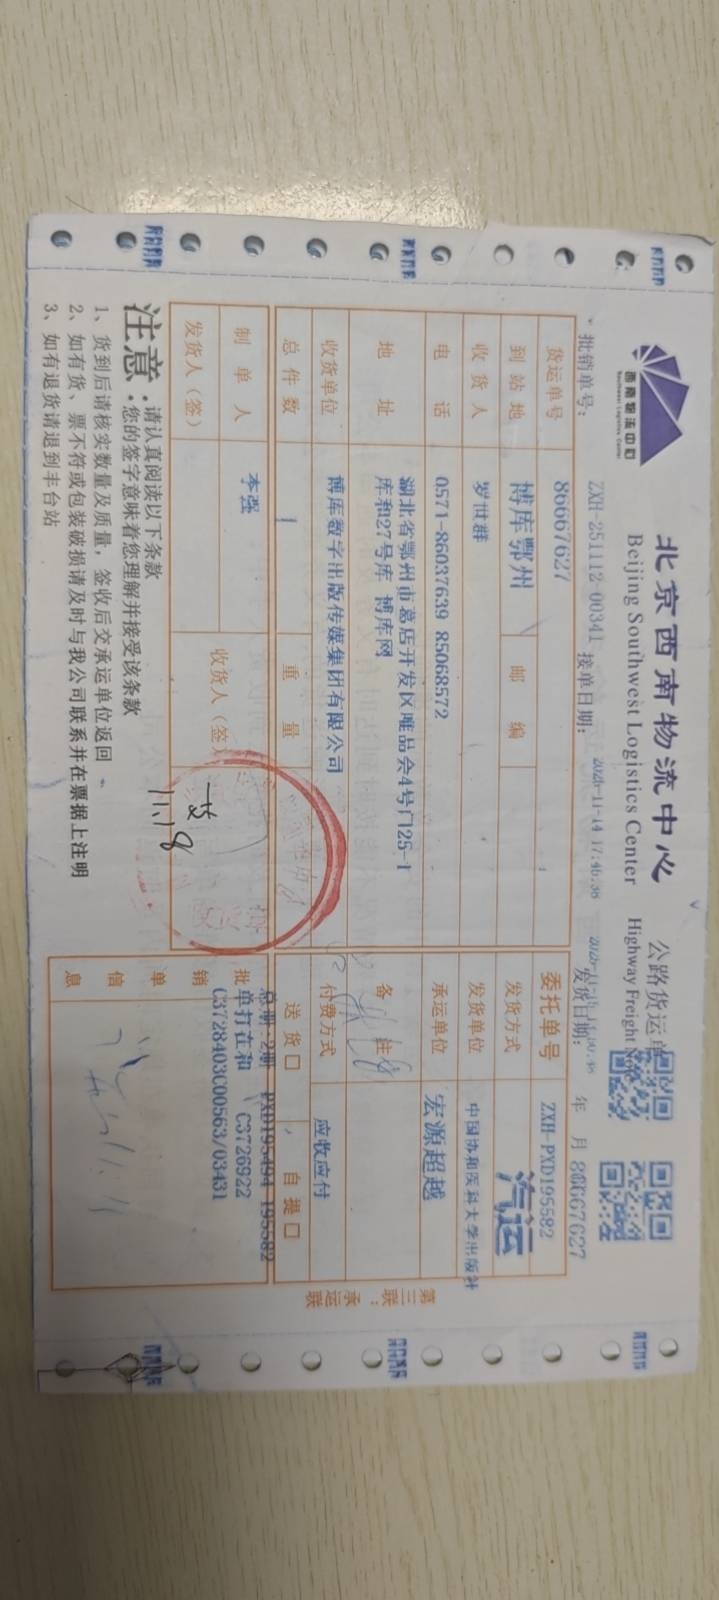 西南物流中心
Southwest Logistics Center
北京西南物流中心
Beijing Southwest Logistics Center
公路货运单
Highway Freight
批销单号: ZXH-251112-00341
接单日期: 2025-11-14 17:46:38
发货日期: 年 月
86667627
货运单号 86667627
委托单号 ZXH-PXD195582
到站地 博库鄂州
邮编
发货方式 汽运
收货人 罗世群
发货单位 中国协和医科大学出版社
电话 0571-86037639 85068572
承运单位 宏源超越
地址 湖北省鄂州市葛店开发区唯品会4号门25-1
库和27号库 博库网
备注
收货单位 博库数字出版传媒集团有限公司
付费方式 应收应付
总件数 1
重量
送货口 自提口
制单人 李强
发货人(签)
收货人(签)
11.18
批销单信息
总册:2册 PXD195494 195582
单打在和 C3726922
C3728403C00563/03431
第三联:承运联
注意:
请认真阅读以下条款
您的签字意味着您理解并接受该条款
1、货到后请核实数量及质量,签收后交承运单位返回
2、如有货、票不符或包装破损请及时与我公司联系并在票据上注明
3、如有退货请退到丰台站